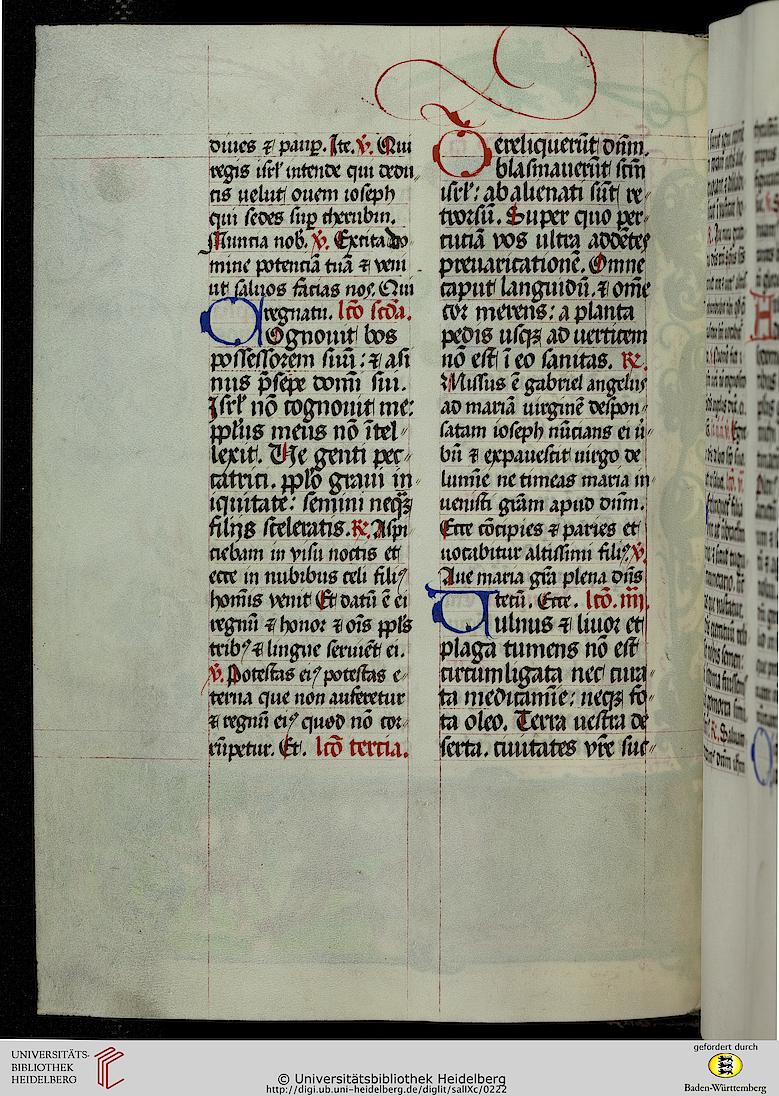 diues ⁊ paup̲. Ite. ℣. Qui
regis isrl' intende qui dedu
cis uelut ouem ioseph
qui sedes sup̲ cherubin.
Nuncia nob̲. ℣. Excita do
mine potenciā tuā ⁊ veni
ut saluos facias nos. Qui
regnatu. lc̄o sc̄da.
Cognouit bos
possessorem suū: ⁊ asi
nus p̄sepe domī sui.
Isrl' nō cognouit me:
pp̄lus meus nō ītel-
lexit. Ve genti pec-
catrici. pp̄lo graui in-
iquitate: semini neqȝ
filijs sceleratis. ℟. Aspi
ciebam in visu noctis et
ecce in nubibus celi filiꝰ
homīs venit Et datū ē ei
regnū ⁊ honor ⁊ oīs pp̄ls
tribꝰ ⁊ lingue seruiēt ei.
℣. Potestas eiꝰ potestas e-
terna que non auferetur
⁊ regnū eiꝰ quod nō cor-
rūpetur. Et. lc̄o tercia.
Dereliquerūt dn̄m.
blasmauerūt sc̄m
isrl': abalienati sūt re-
trorsū. Super quo per-
cutiā vos ultra addētes
preuaricationē. Omne
caput languidū. ⁊ om̄e
cor merens: a planta
pedis usqȝ ad uerticem
nō est ī eo sanitas. ℟.
Missus ē gabriel angelus
ad mariā uirginē despon-
satam ioseph nūcians ei ū-
bū ⁊ expauescit uirgo de
lumīe ne timeas maria in-
uenisti grām apud dn̄m.
Ecce cōcipies ⁊ paries et
uocabitur altissimi filiꝰ ℣.
Aue maria grā plena dn̄s
tecū. Ecce. lc̄o. iiij.
Uulnus ⁊ liuor et
plaga tumens nō est
circumligata nec cura-
ta medicamīe: neqȝ fo-
ta oleo. Terra uestra de-
serta. ciuitates vr̄e suc-
UNIVERSITÄTS-
BIBLIOTHEK
HEIDELBERG
© Universitätsbibliothek Heidelberg
http://digi.ub.uni-heidelberg.de/diglit/salIXc/0222
gefördert durch
Baden-Württemberg